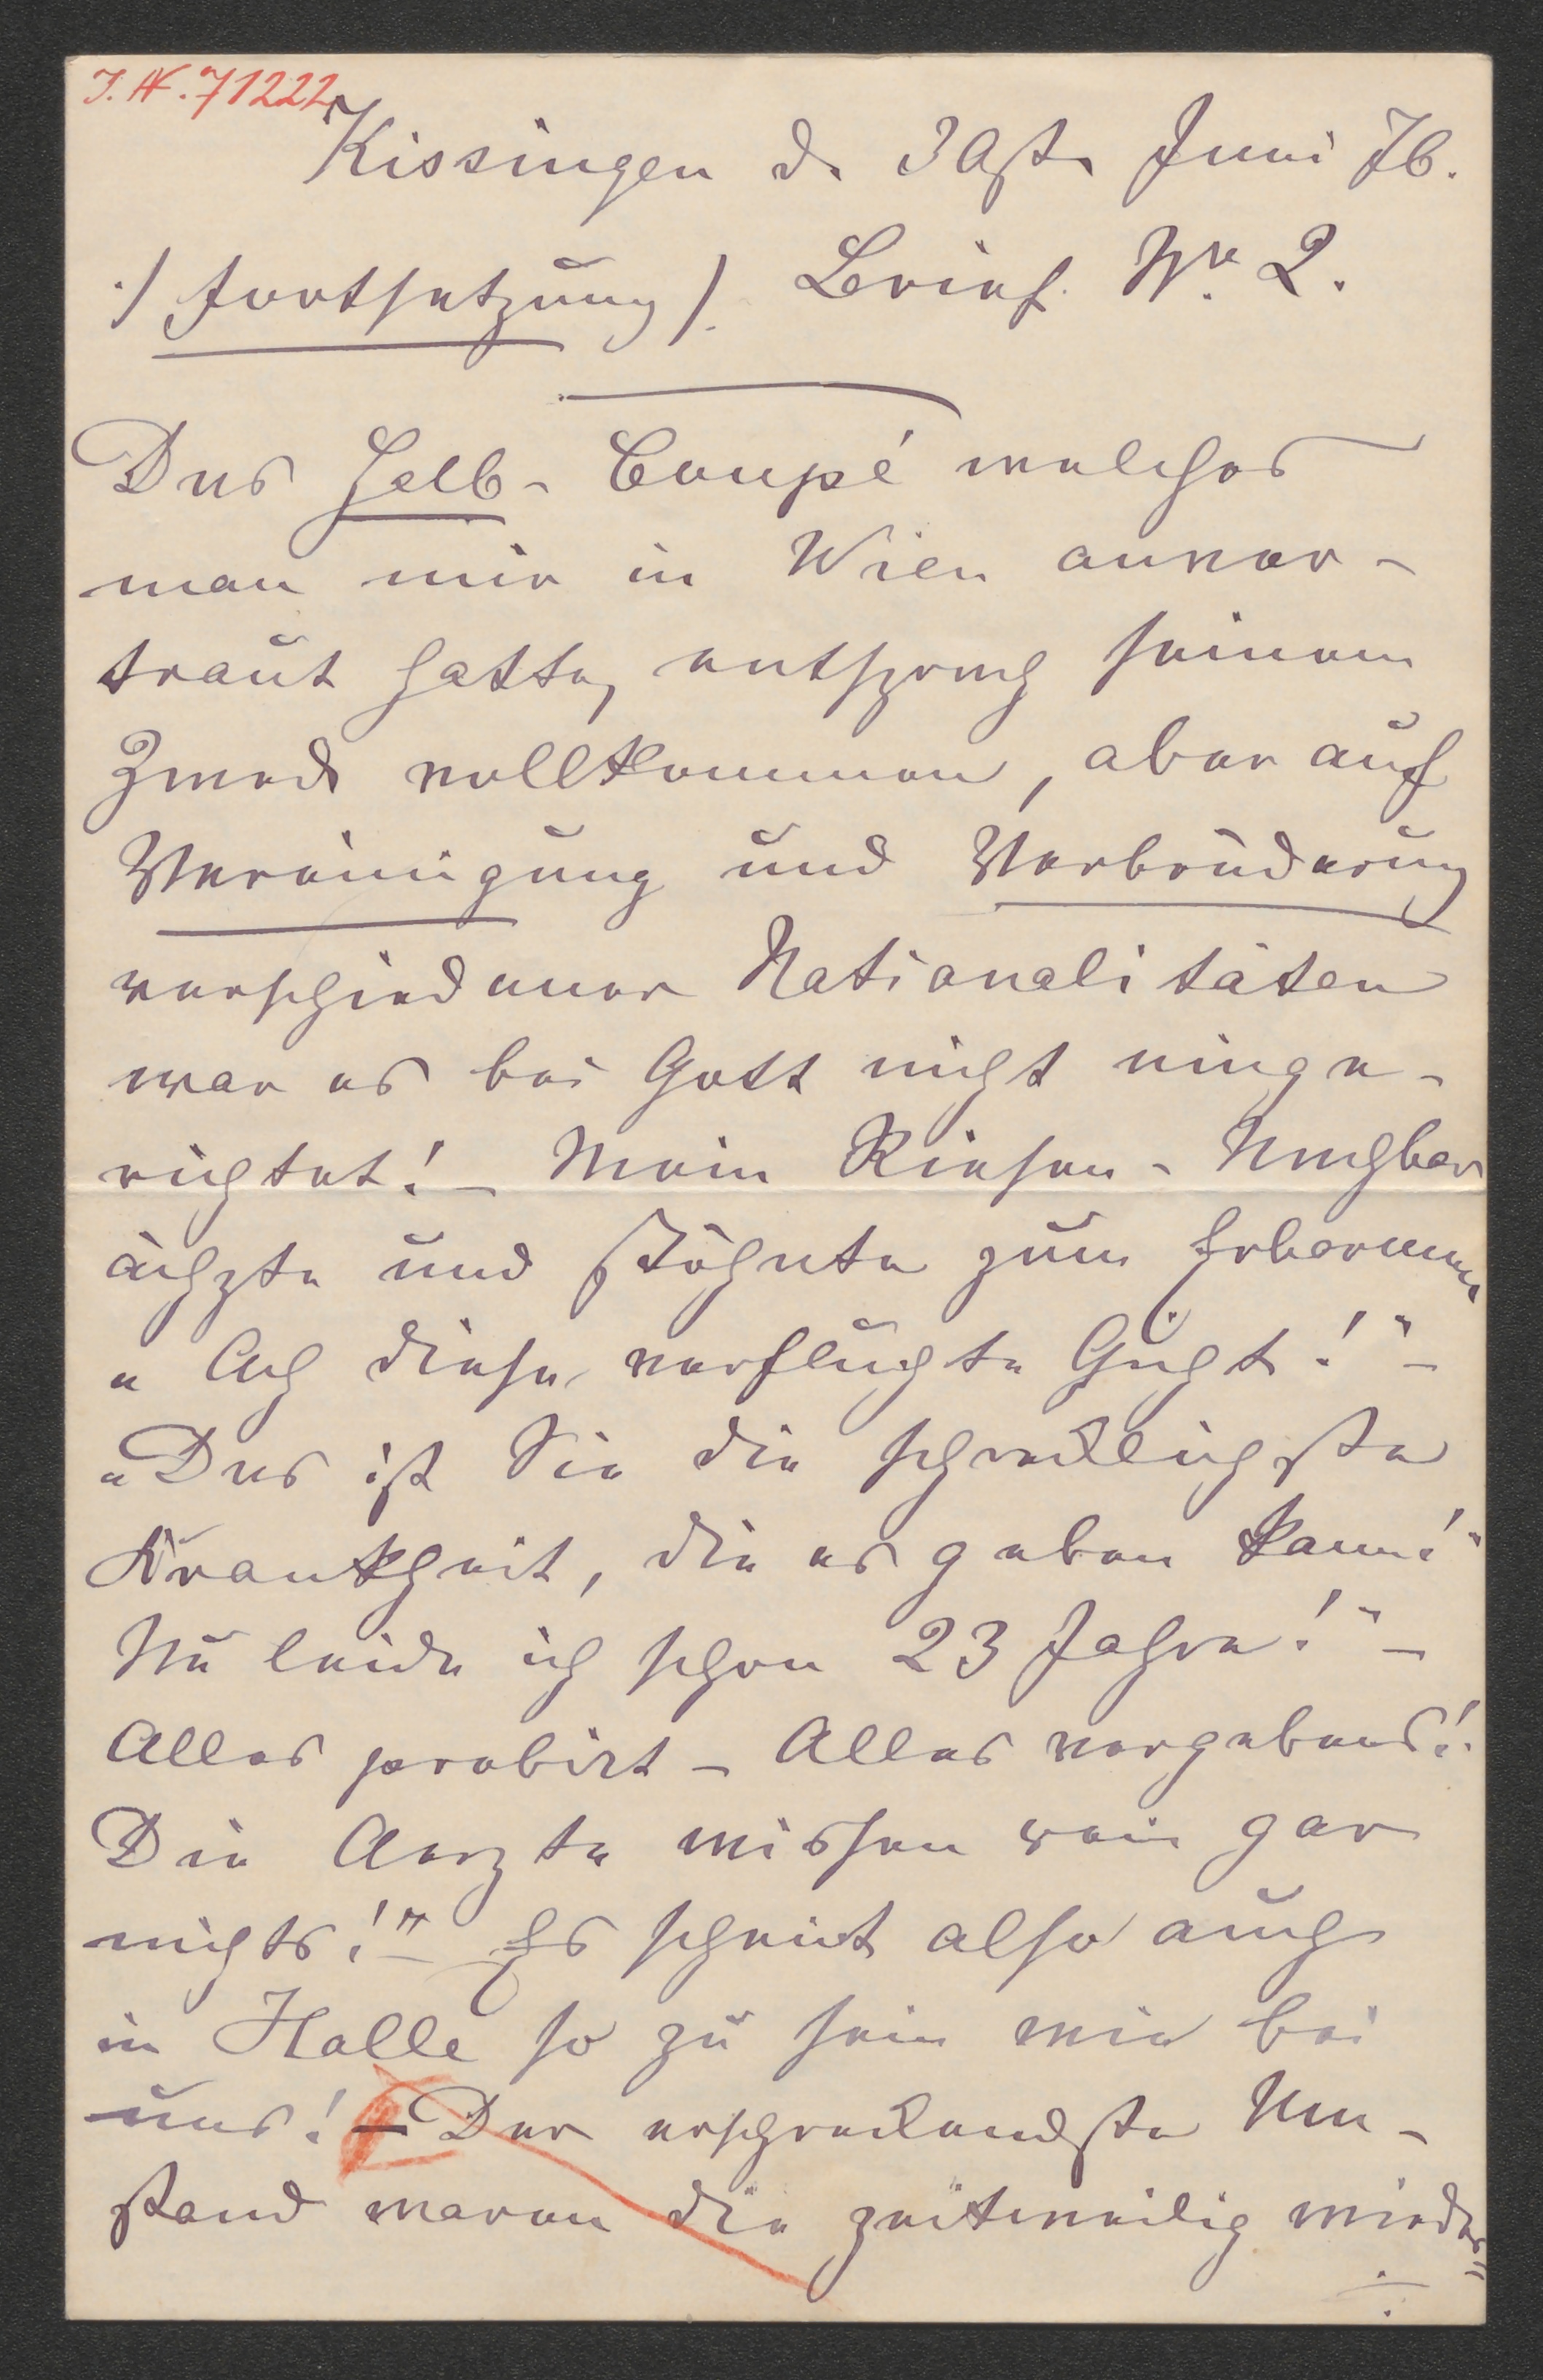 I.N. 71222
Kissingen d. 30st. Juni 76.
./ Fortsetzung /. Brief Nr. 2.
Das Halb- Coupé welches
man mir in Wien anver-
traut hatte, entsprach seinem
Zweck vollkommen, aber auf
Vereinigung und Verbrüderung
verschiedener Nationalitäten
war es bei Gott nicht einge-
richtet! - Mein Riesen - Nachbar
ächzte und stöhnte zum Erbarmen
"Ach diese verfluchte Gicht!" -
"Das ist Sie die schrecklichste
Krankheit, die es geben kann!"
Nu leide ich schon 23 Jahre!" -
Alles probirt - Alles vergebens!
Die Aerzte wissen rein gar
nichts!" - Es scheint also auch
in Halle so zu sein wie bei
uns! - Der erschreckendste Um-
stand waren die zeitweilig wieder=